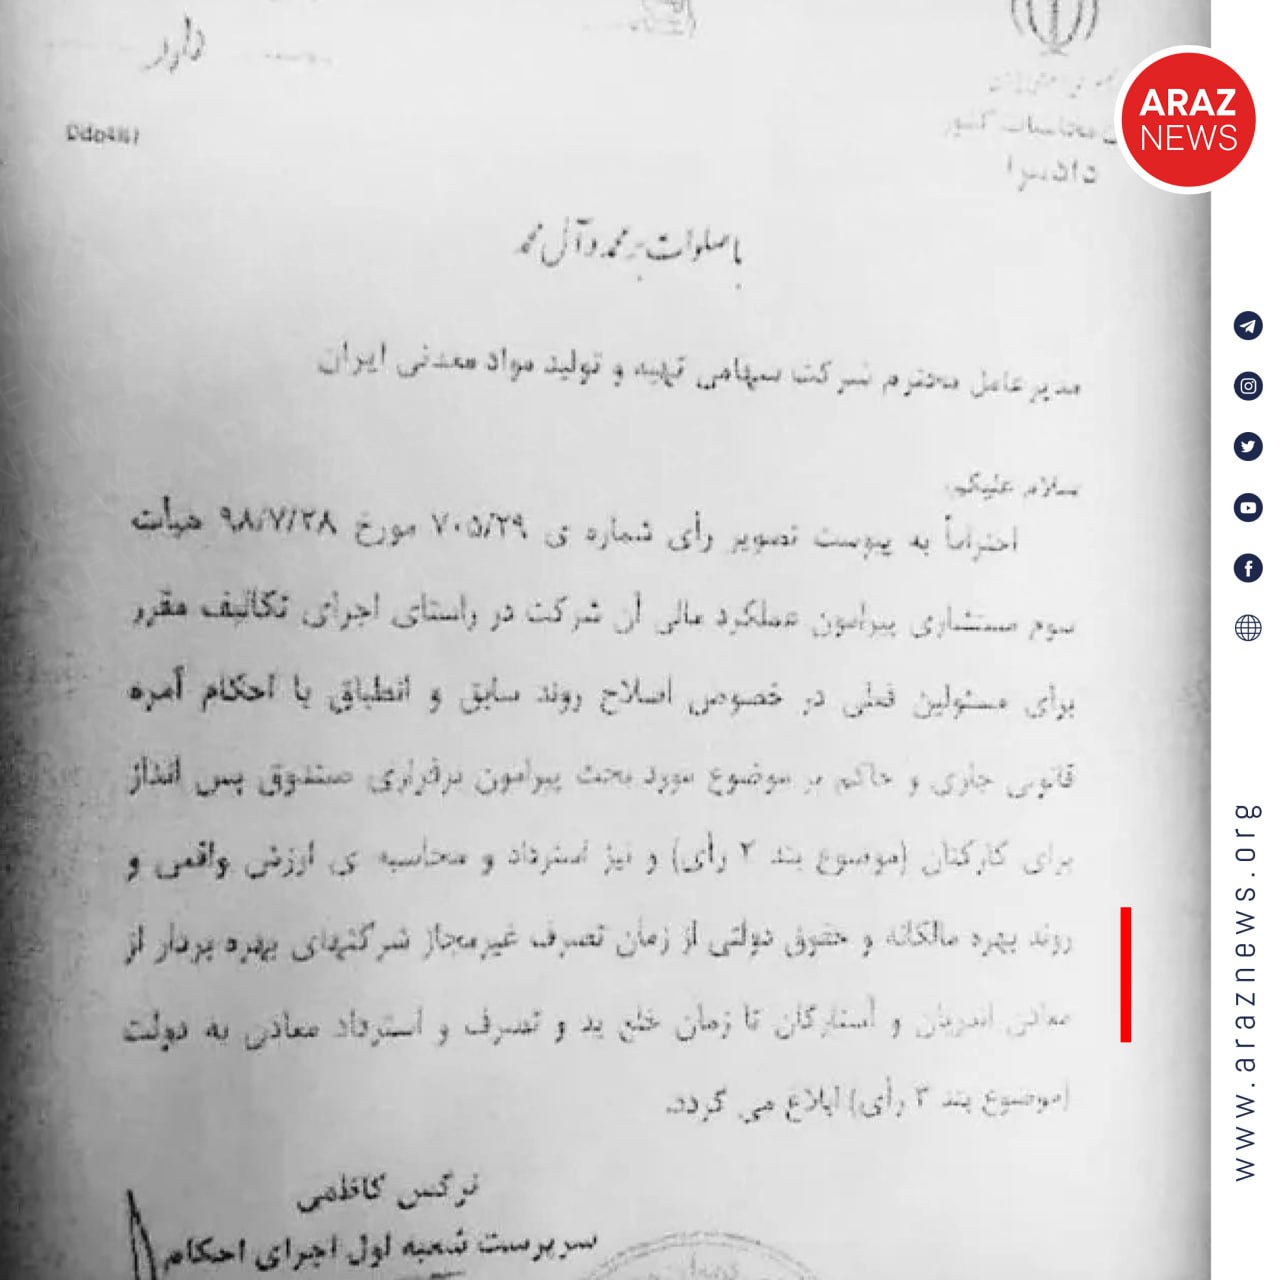 دارد
محاسبات کشور
دادسرا
ARAZ
NEWS
با صلوات بر محمد و آل محمد
مدیر عامل محترم شرکت سهامی تهیه و تولید مواد معدنی ایران
سلام علیکم
احتراماً به پیوست تصویر رأی شماره ی ۷۰۵/۲۹ مورخ ۹۸/۷/۲۸ هیأت
سوم مستشاری پیرامون عملکرد مالی آن شرکت در راستای اجرای تکالیف مقرر
برای مسئولین فعلی در خصوص اصلاح روند سابق و انطباق با احکام آمره
قانونی جاری و حاکم بر موضوع مورد بحث پیرامون برقراری صندوق پس انداز
برای کارکنان (موضوع بند ۲ رأی) و نیز استرداد و محاسبه ی ارزش واقعی و
روند بهره مالکانه و حقوق دولتی از زمان تصرف غیرمجاز شرکتهای بهره بردار از
معادن اندریان و آستارکان تا زمان خلع ید و تصرف و استرداد معادن به دولت
(موضوع بند ۳ رأی) ابلاغ می گردد.
نرگس کاظمی
سرپرست شعبه اول اجرای احکام
www.araznews.org